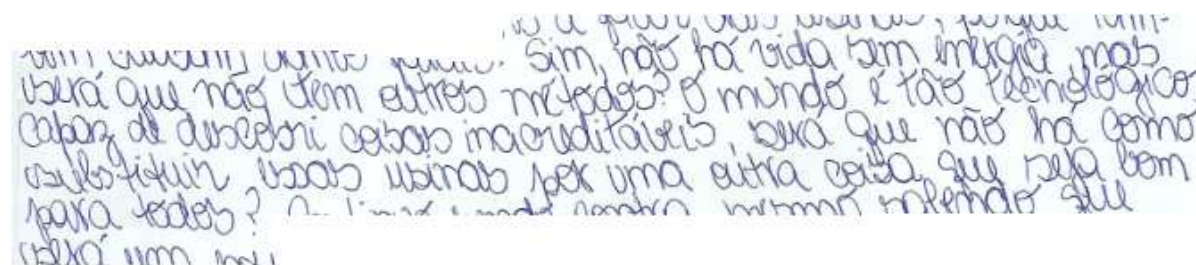 Sim, não há vida sem energia, mas
será que não tem outros métodos? O mundo é tão tecnológico
capaz de descobri coisas inacreditáveis, será que não há como
substituir essas usinas por uma outra coisa que seja bom
para todos? mesmo sabendo que
será um